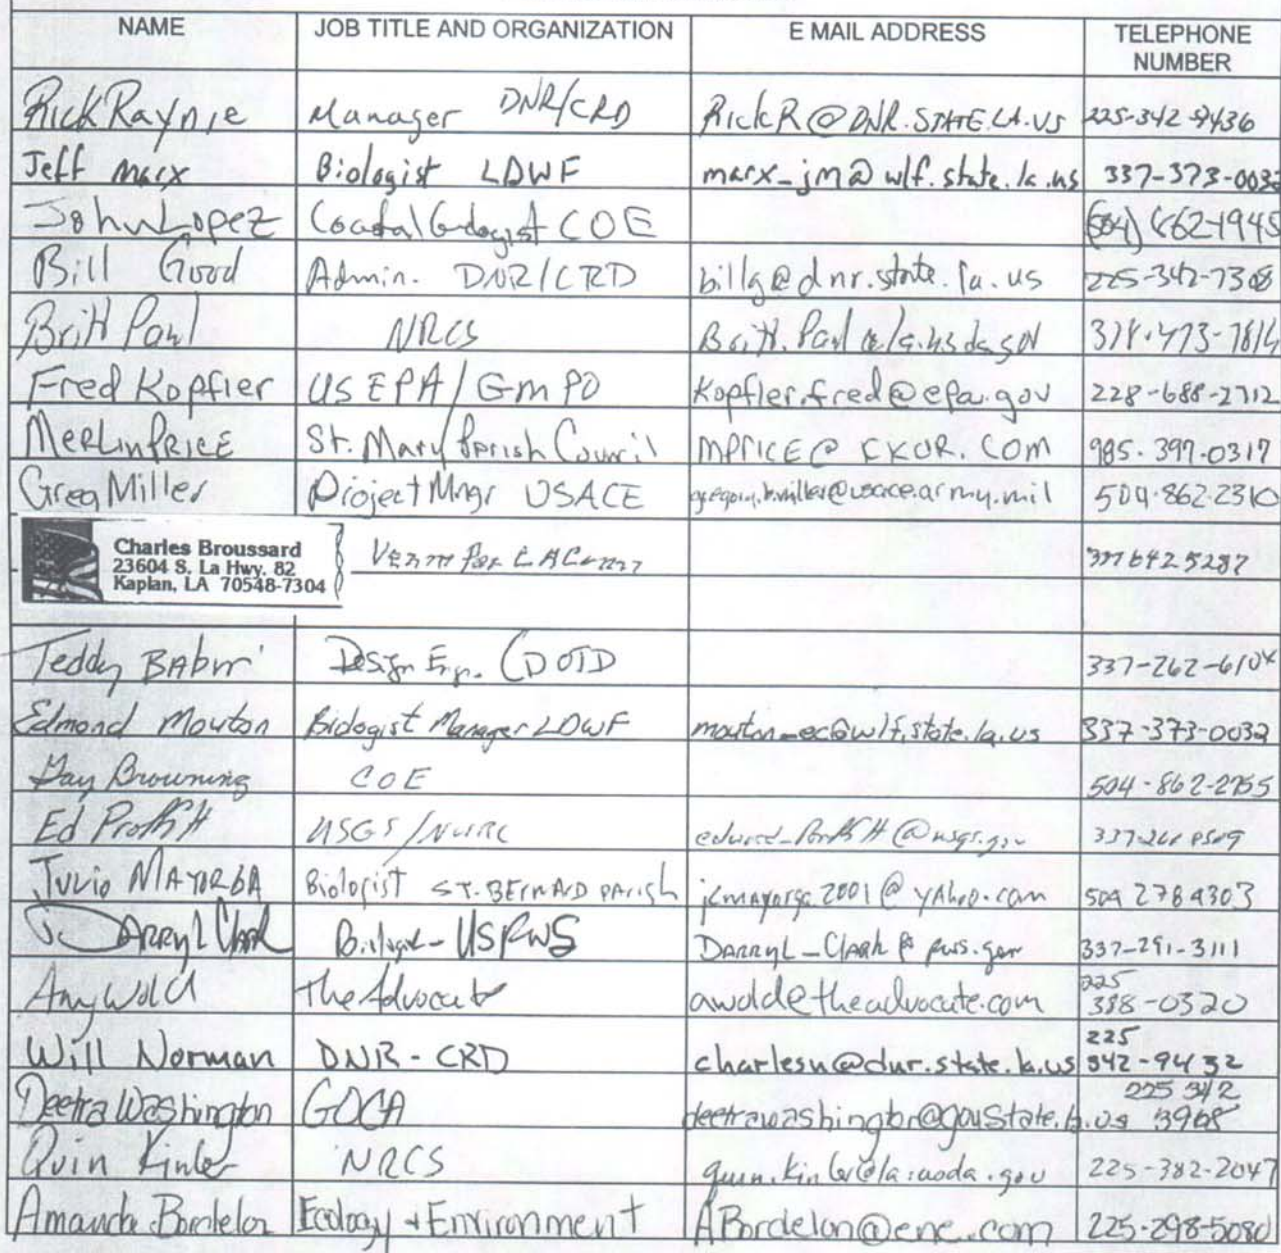 NAME JOB TITLE AND ORGANIZATION E MAIL ADDRESS TELEPHONE NUMBER
Rick Raynie Manager DNR/CRD RickR@DNR.STATE.LA.US 225-342-9436
Jeff Marx Biologist LDWF marx_jm@wlf.state.la.us 337-373-0032
John Lopez Coastal Geologist COE (504) 862-1945
Bill Good Admin. DNR/CRD billg@dnr.state.la.us 225-342-7308
Britt Paul NRCS Britt.Paul@la.usda.gov 318-473-7816
Fred Kopfler US EPA/GMPO Kopfler.fred@epa.gov 228-688-2712
Merlin PRICE St. Mary Parish Council MPRICE@ 985-397-0317
Greg Miller Project Mngr USACE gregory.b.miller@usace.army.mil 504-862-2310
Charles Broussard
23604 S. La Hwy. 82
Kaplan, LA 70548-7304
337 642 5287
Teddy Design Eng. DOTD 337-262-6104
Edmond Mouton Biologist Manager LDWF mouton_ec@wlf.state.la.us 337-373-0032
Gay Browning COE 504-862-2755
Ed Proffitt USGS/NWRC edward_Proffitt@usgs.gov
Julio MAYORGA Biologist ST. BERNARD PARISH jcmayorga2001@yahoo.com 504 278 4303
Darryl Clark Biologist - USFWS Darryl_Clark@fws.gov 337-291-3111
Amy Wold The Advocate awold@theadvocate.com 225 388-0320
Will Norman DNR - CRD charlesn@dnr.state.la.us 225 342-9432
Deetra Washington GOCA deetrawashington@gov.state.la.us 225 342 3968
Quin Kinler NRCS quin.kinler@la.usda.gov 225-382-2047
Amanda Bordelon Ecology + Environment ABordelon@ene.com 225-298-5080